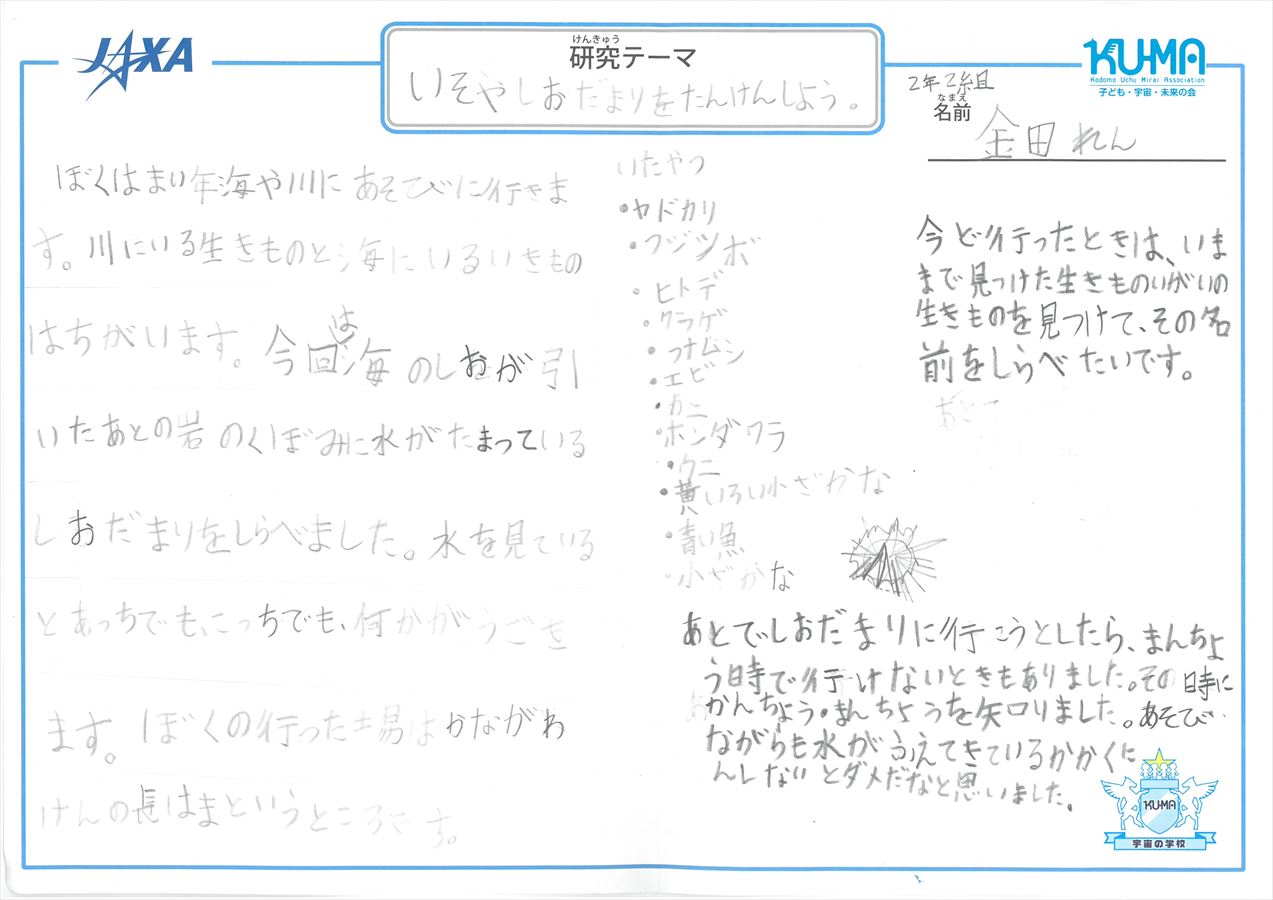 JAXA
けんきゅう
研究テーマ
いそやしおだまりをたんけんしよう。
KU-MA
Kodomo Uchu Mirai Association
子ども・宇宙・未来の会
2年2組
なまえ
名前
金田れん
ぼくはまい年海や川にあそびに行きま
す。川にいる生きものと海にいるいきもの
はちがいます。今回は海のしおが引
いたあとの岩のくぼみに水がたまっている
しおだまりをしらべました。水を見ている
とあっちでも、こっちでも、何かがうごき
ます。ぼくの行った場しょはかながわ
けんの長はまというところです。
いたやつ
•ヤドカリ
•フジツボ
•ヒトデ
•クラゲ
•フナムシ
•エビ
•カニ
•ホンダワラ
•ウニ
•黄いろい小ざかな
•青い魚
•小ざかな
今ど行ったときは、いま
まで見つけた生きものいがいの
生きものを見つけて、その名
前をしらべたいです。
あとでしおだまりに行こうとしたら、まんちょ
う時で行けないときもありました。その時に
かんちょう・まんちょうを知りました。あそび
ながらも水がふえてきているかかくに
んしないとダメだなと思いました。
KU-MA
宇宙の学校